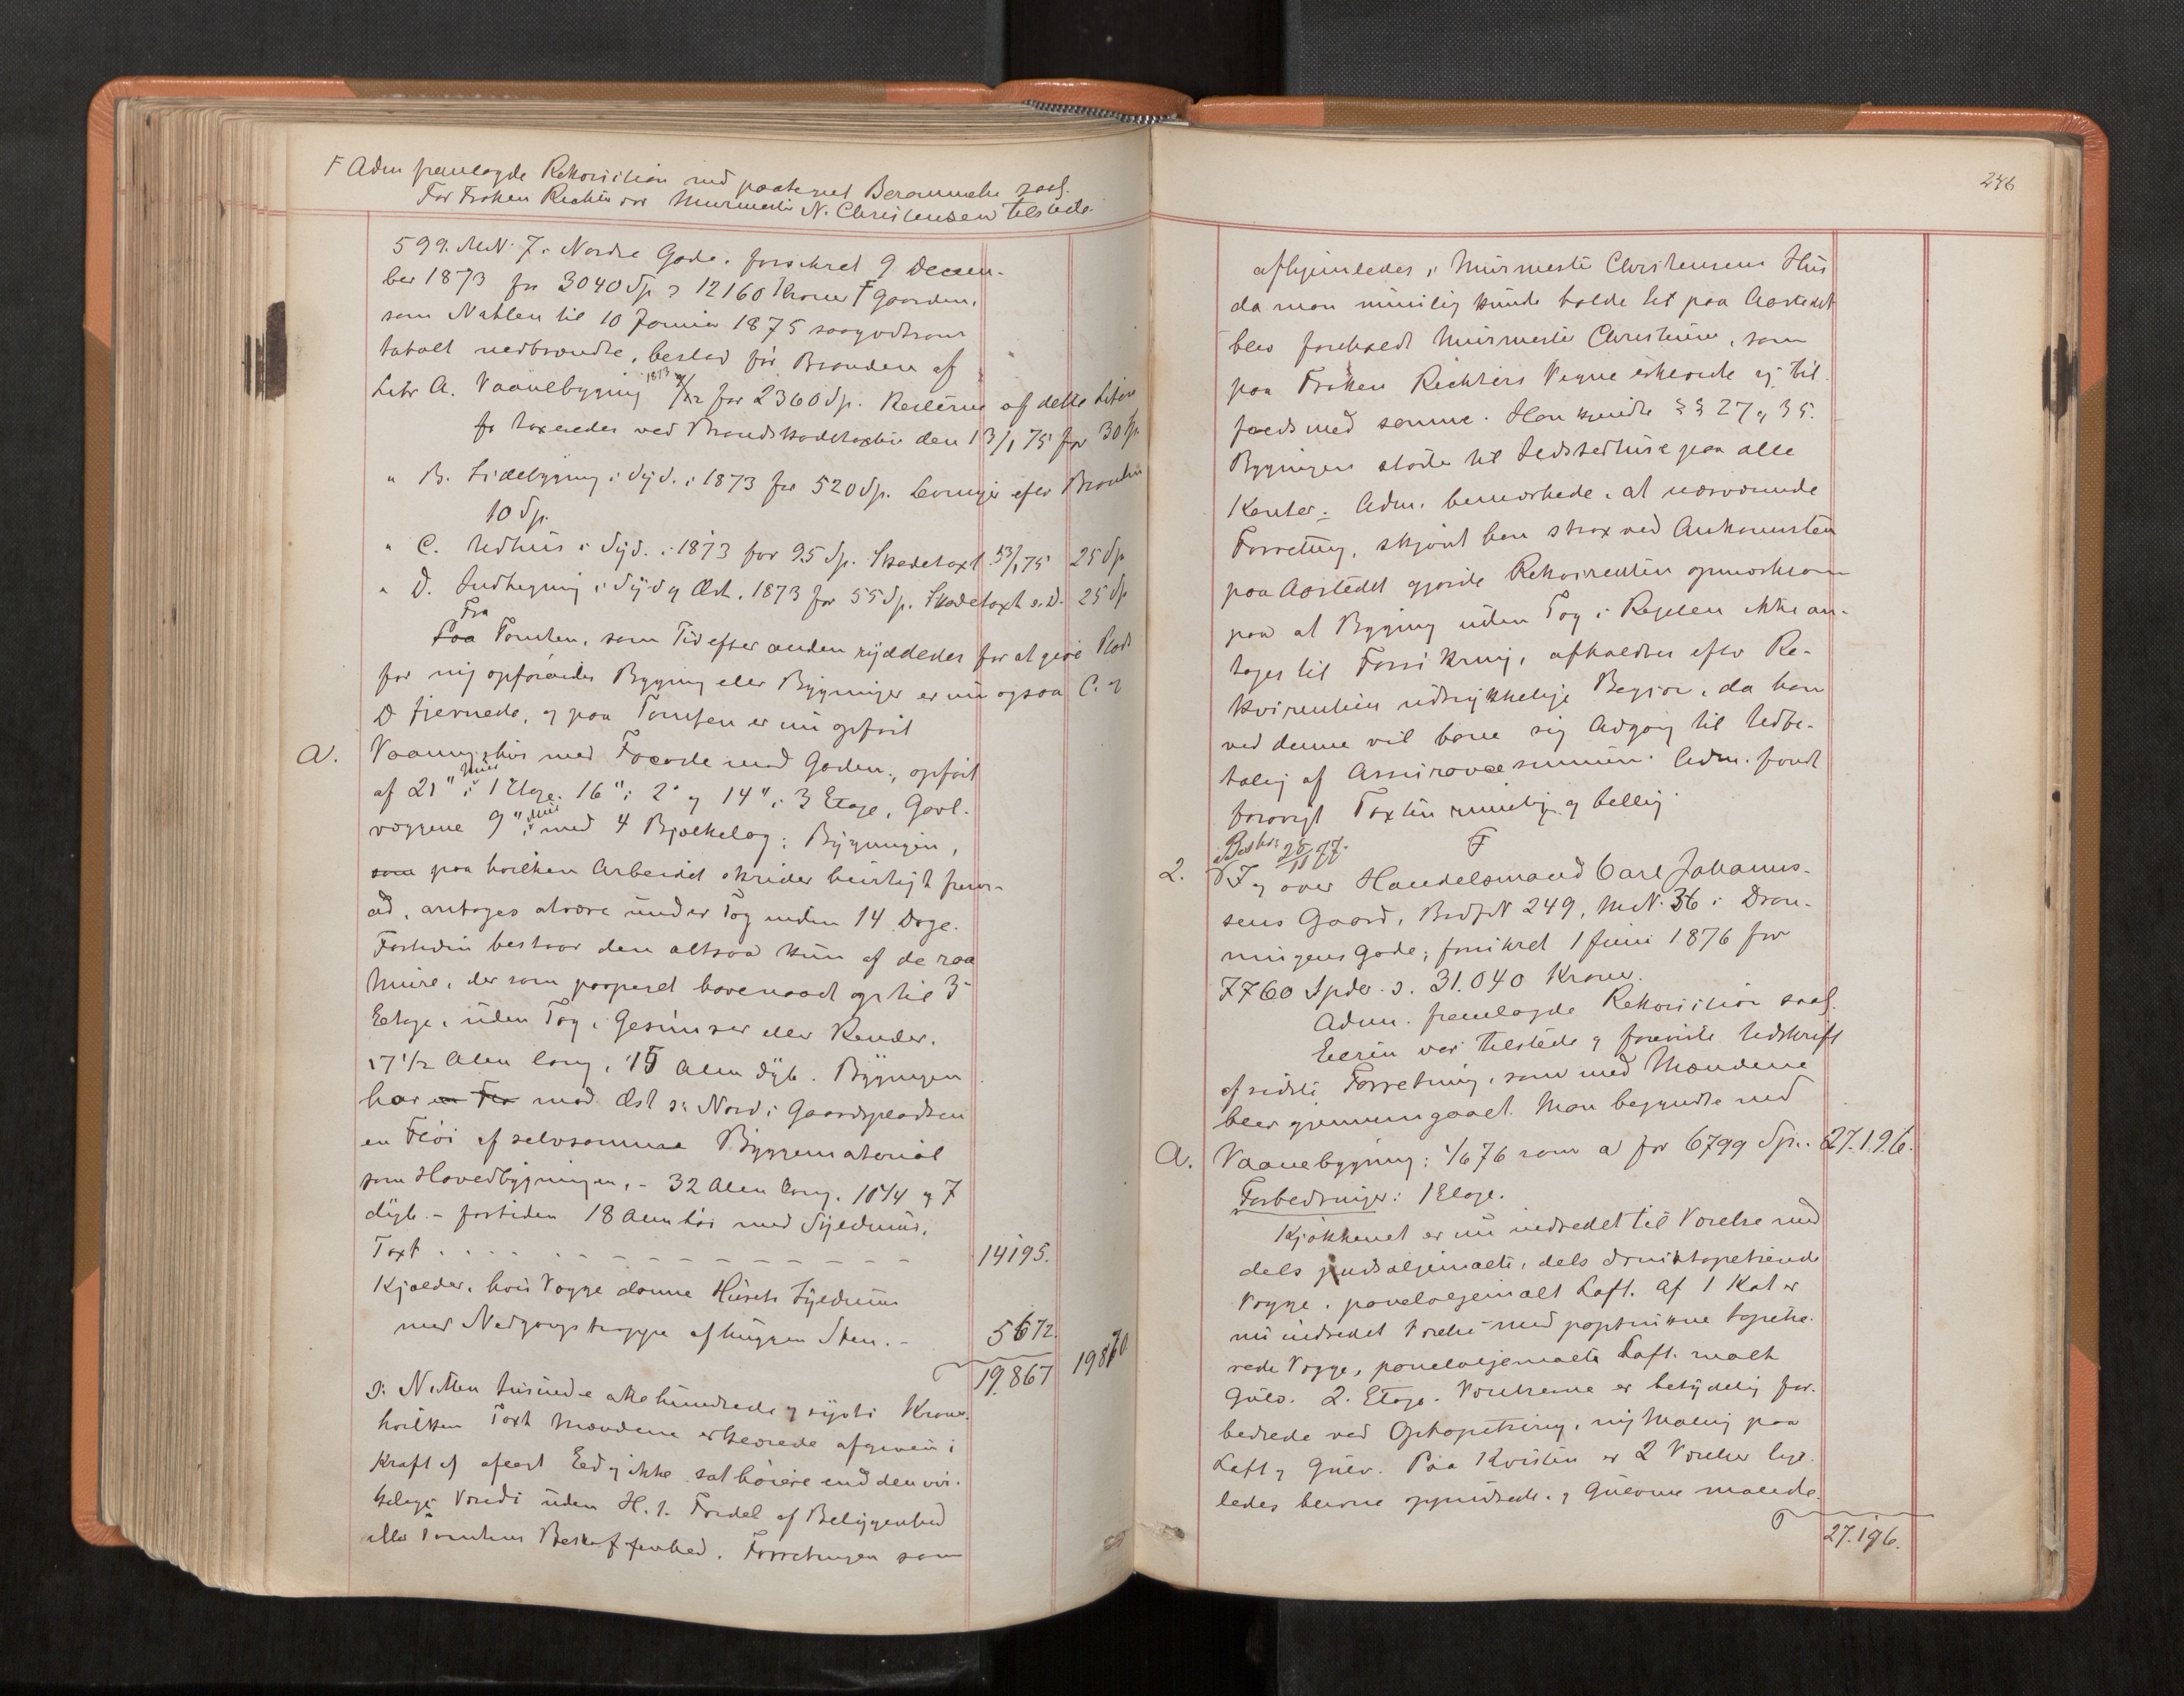 F Adm fremlagde Rekvisition med paategnet Berammelse saal.
For Frøken Richter var Muurmester N. Christensen tilstede.
599. MN. 7 i Nordre Gade. forsikret 9 Decem-
ber 1873 for 3040 Sp ɔ: 12160 Kroner F Gaarden,
som Natten til 10 Januar 1875 saagodtsom
totalt nedbrændte, bestod før Branden af
Litr A. Vaanebygning 1873 9/12 for 2360 Sp. Resterne af dette Litra
taxeredes ved Brandskadetaxten den 13/1 75 for 30 Sp.
" B. Sidebygning i Syd. i 1873 for 520 Sp. Levninger efter Branden
10 Sp.
" C. Udhuus i Syd. i 1873 for 95 Sp. Skadetaxt 13/1 75 25 Sp
" D. Indhegning i Syd og Øst. 1873 for 55 Sp. Skadetaxt s. D. 25 Sp
Fra
Paa Tomten, som Tid efter anden ryddedes for at give Plads
for ny opførendes Bygning eller Bygninger er nu ogsaa C. og
D fjernede, og paa Tomten er nu opført
A. Vaaningshus med Facade mod Gaden, opført
af 21" Muur i 1 Etage. 16" i 2den og 14" i 3 Etage, Gavl-
væggene 9" Muur med 4 Bjælkelag. Bygningen,
som paa hvilken Arbeidet skrider hurtigt frem-
ad, antages at være under Tag inden 14 Dage.
Fortiden bestaar den altsaa kun af de raa
Mure, der som paapeget have naaet op til 3die
Etage, uden Tag, Gesimser eller Render.
17 1/2 Alen lang, 15 Alen dyb. Bygningen
har en Flø mod Øst ɔ: Nord i Gaardspladsen
en Fløi af selvsamme Byggemateriale
som Hovedbygningen, - 32 Alen lang, 10 1/4 og 7
dyb. - fortiden 18 Alen høi med Syldmuur.
Taxt . . . . . . . . 14195.
Kjælder, hvis Vægge danne Husets Syldmuur
med Nedgangstrappe af huggen Sten. - 5672.
19.867 19870
ɔ: Nitten tusinde otte hundrede og sytti Kroner
hvilken Taxt Mændene erklærede afgiven i
Kraft af aflagt Eed og ikke sat høiere end den vir-
kelige Værdi uden H. t. Fordel af Beliggenhed
eller Tomtens Beskaffenhed. Forretningen som
246
afhjemledes i Muurmester Christensens Hus
da man umulig kunde holde Let paa Aastedet
blev foreholdt Muurmester Christensen, som
paa Frøken Richters Vegne erklærede sig til-
freds med samme. Han kjendte §§ 27 og 35.
Bygningen støder til Udstedhuse paa alle
Kanter. Adm. bemærkede, at nærværende
Forretning, skjønt han strax ved Ankomsten
paa Aastedet gjorde Rekvirenten opmærksom
paa at Bygning uden Tag i Regelen ikke an-
tages til Forsikring, afholdtes efter Re-
kvirentens udtrykkelige Begjær, da han
ved denne vil bane sig Adgang til Udbe-
taling af Assurancesummen. Adm. fandt
forøvrigt Taxten rimelig og billig
F
Beskr. 28/11 77.
2. Ny over Handelsmand Carl Johannes-
sens Gaard, BrdfN 249, MN. 36 i Dron-
ningens Gade; forsikret 1 Juni 1876 for
7760 Spdr. ɔ: 31.040 Kroner.
Adm. fremlagde Rekvisition saal.
Eieren var tilstede og foreviste Udskrift
af sidste Forretning, som med Mændene
blev gjennemgaaet. Man begyndte med
A. Vaanebygning: 1/6 76 som a for 6799 Sp. 27.196.
Forbedringer: 1 Etage.
Kjøkkenet er nu indredet til Værelse med
dels pudsoljemalte, dels tapetserede
Vægge, paneloljemalt Loft. Af 1 Kot er
nu indredet Værelse med tapetse-
rede Vægge, paneloljemalt Loft, malt
Gulv. 2. Etage. Værelserne er betydelig for-
bedrede ved Optapetsering, ny Maling paa
Loft og Gulv. Paa Kvisten er 2 Værelser lige-
ledes blevne oppudsede og Gulvene malede.
27.196.